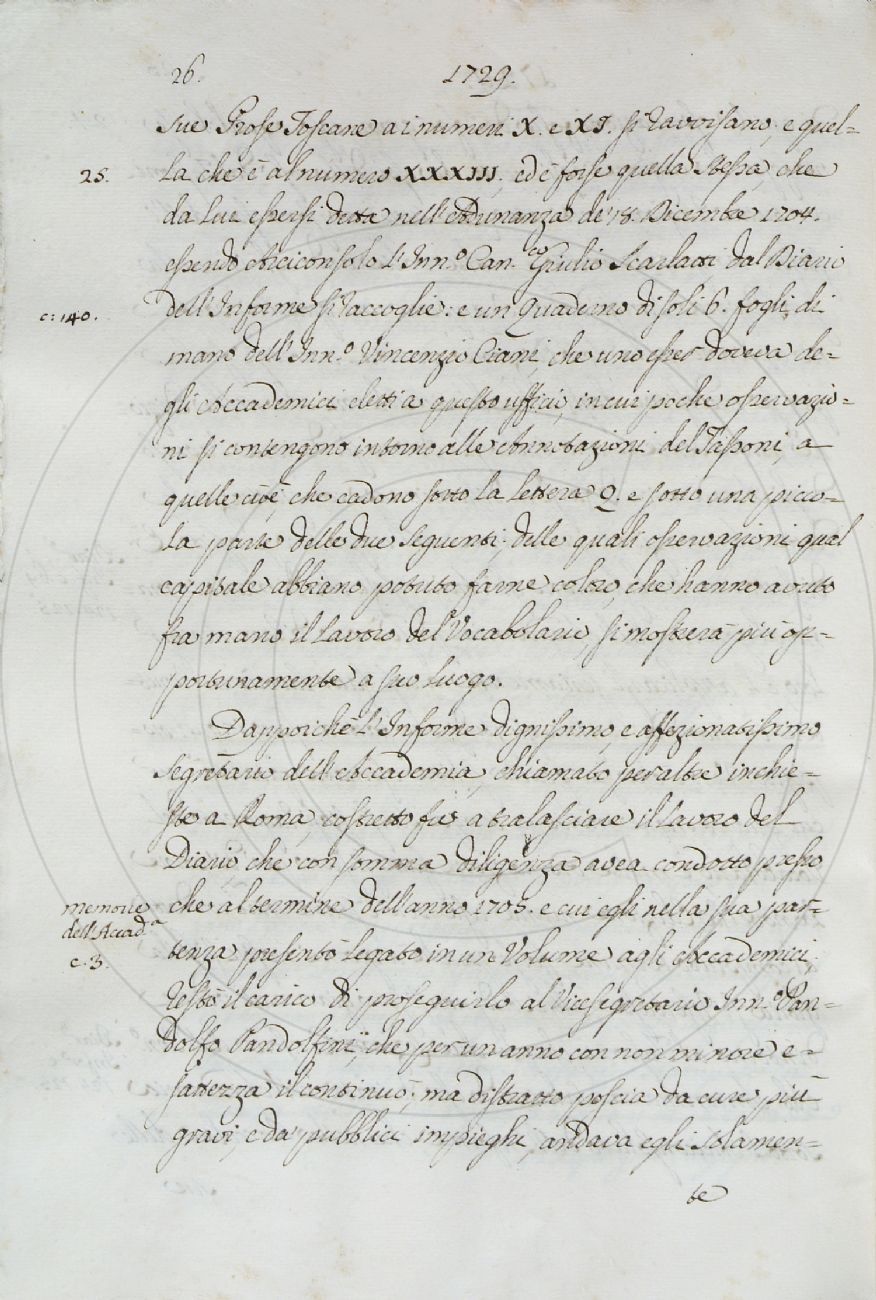 26.
1729.
sue Prose Toscane a i numeri X. e XI. si ravvisano, e quel=
25.
la che è al numero XXXIII., ed è forse quella stessa, che
da Lui essersi detta nell'Adunanza de' 18. Dicembre 1704.
essendo Arciconsolo l'Inn.º Can.co Giulio Scarlatti dal Diario
c: 140.
dell'Informe si raccoglie: e un Quaderno di soli 6. fogli di
mano dell'Inn.º Vincenzio Ciani, che uno esser doveva de=
gli Accademici eletti a questo uffici, in cui poche osservazio=
ni si contengono intorno alle Annotazioni del Tassoni, a
quelle cioè che cadono sotto la lettera Q. e sotto una picco=
la parte delle due seguenti; delle quali osservazioni qual
capitale abbiano potuto farne coloro, che hanno avuto
fra mano il Lavoro del Vocabolario, si mostrerà più op=
portunamente a suo luogo.
Dappoichè l'Informe dignissimo, e affezionatissimo
Segretario dell'Accademia, chiamato per altre inchie=
ste a Roma, costretto fu a tralasciare il Lavoro del
Diario, che con somma diligenza avea condotto presso
memorie
dell'Accad.a
c. 3.
che al termine dell'anno 1705. e cui egli nella sua par=
tenza presentò legato in un Volume agli Accademici,
restò il carico di proseguirlo al Vicesegretario Inn.º Pan=
dolfo Pandolfini, che per un anno con non minore e=
sattezza il continuò; ma distratto poscia da cure più
gravi, e da' pubblici impieghi, andava egli solamen=
te